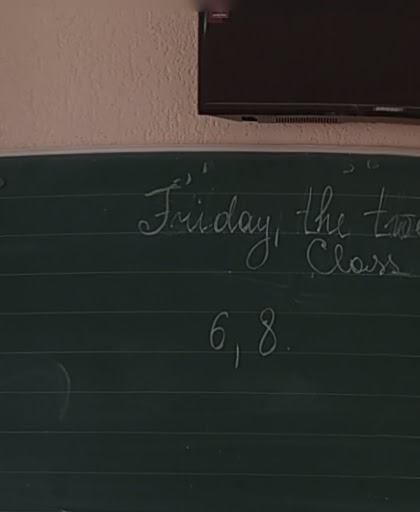 Friday, the
Class
6, 8.